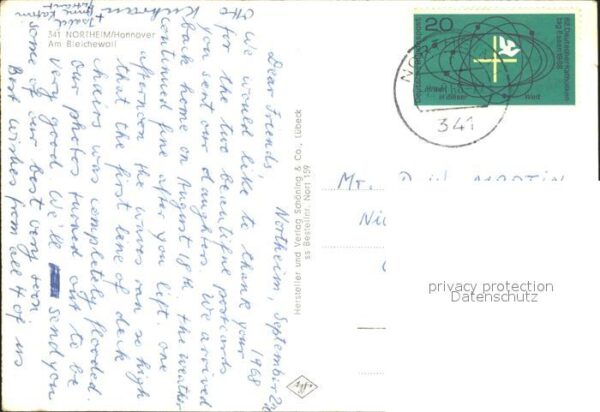 341 NORTHEIM/Hannover
Am Bleichewall
Northeim, September 2
1968
Dear Friends,
We would like to thank you
for the two beautifgul postcards
you sent our daughter. We arrived
back home on August 18th. The weather
continued fine after you lift. One
afternoon the waves ran so high
that the first line of deck
chairs was completely flooded.
Our photos turned out to be
very good. We'll send you
some of our best very soon.
Best wishes from all 4 of us
Hersteller und Verlag Schöning & Co., Lübeck
ss Bestellnr. Nort 159
20
82. Deutscher Katholikentag Essen 1968
Mitten in dieser Welt
341
Mr. MARTIN
privacy protection
Datenschutz